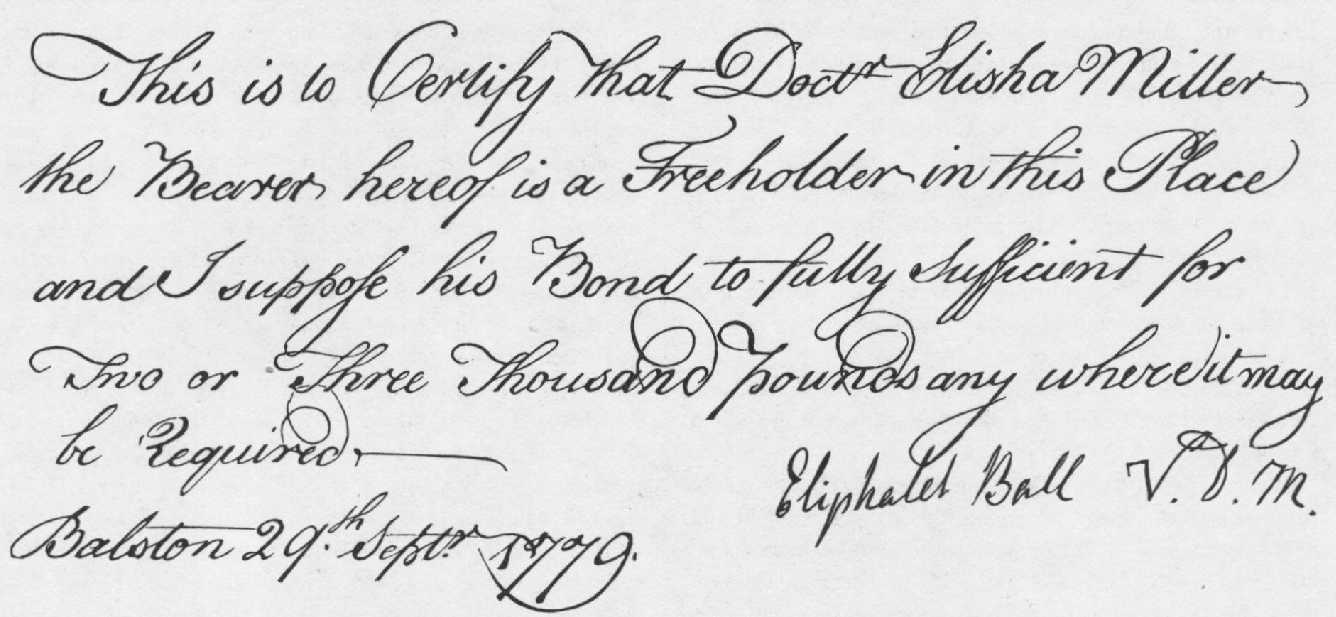 This is to Certify that Doctr Elisha Miller
the Bearer hereof is a Freeholder in this Place
and I suppose his Bond to fully sufficient for
Two or Three Thousand pounds any where it may
be Required.
Eliphalet Ball V. D. M.
Balston 29th Septr 1779.